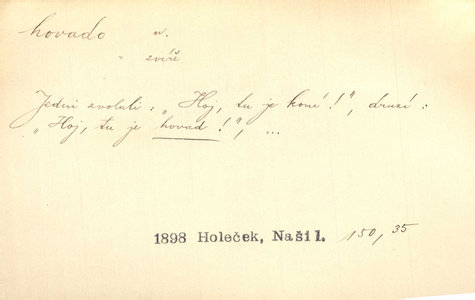 hovado n.
" zvíře
Jedni zvolali: „Hoj, tu je koní!", druzí:
„Hoj, tu je hovad!", ...
1898 Holeček, Naši 1. 150, 35